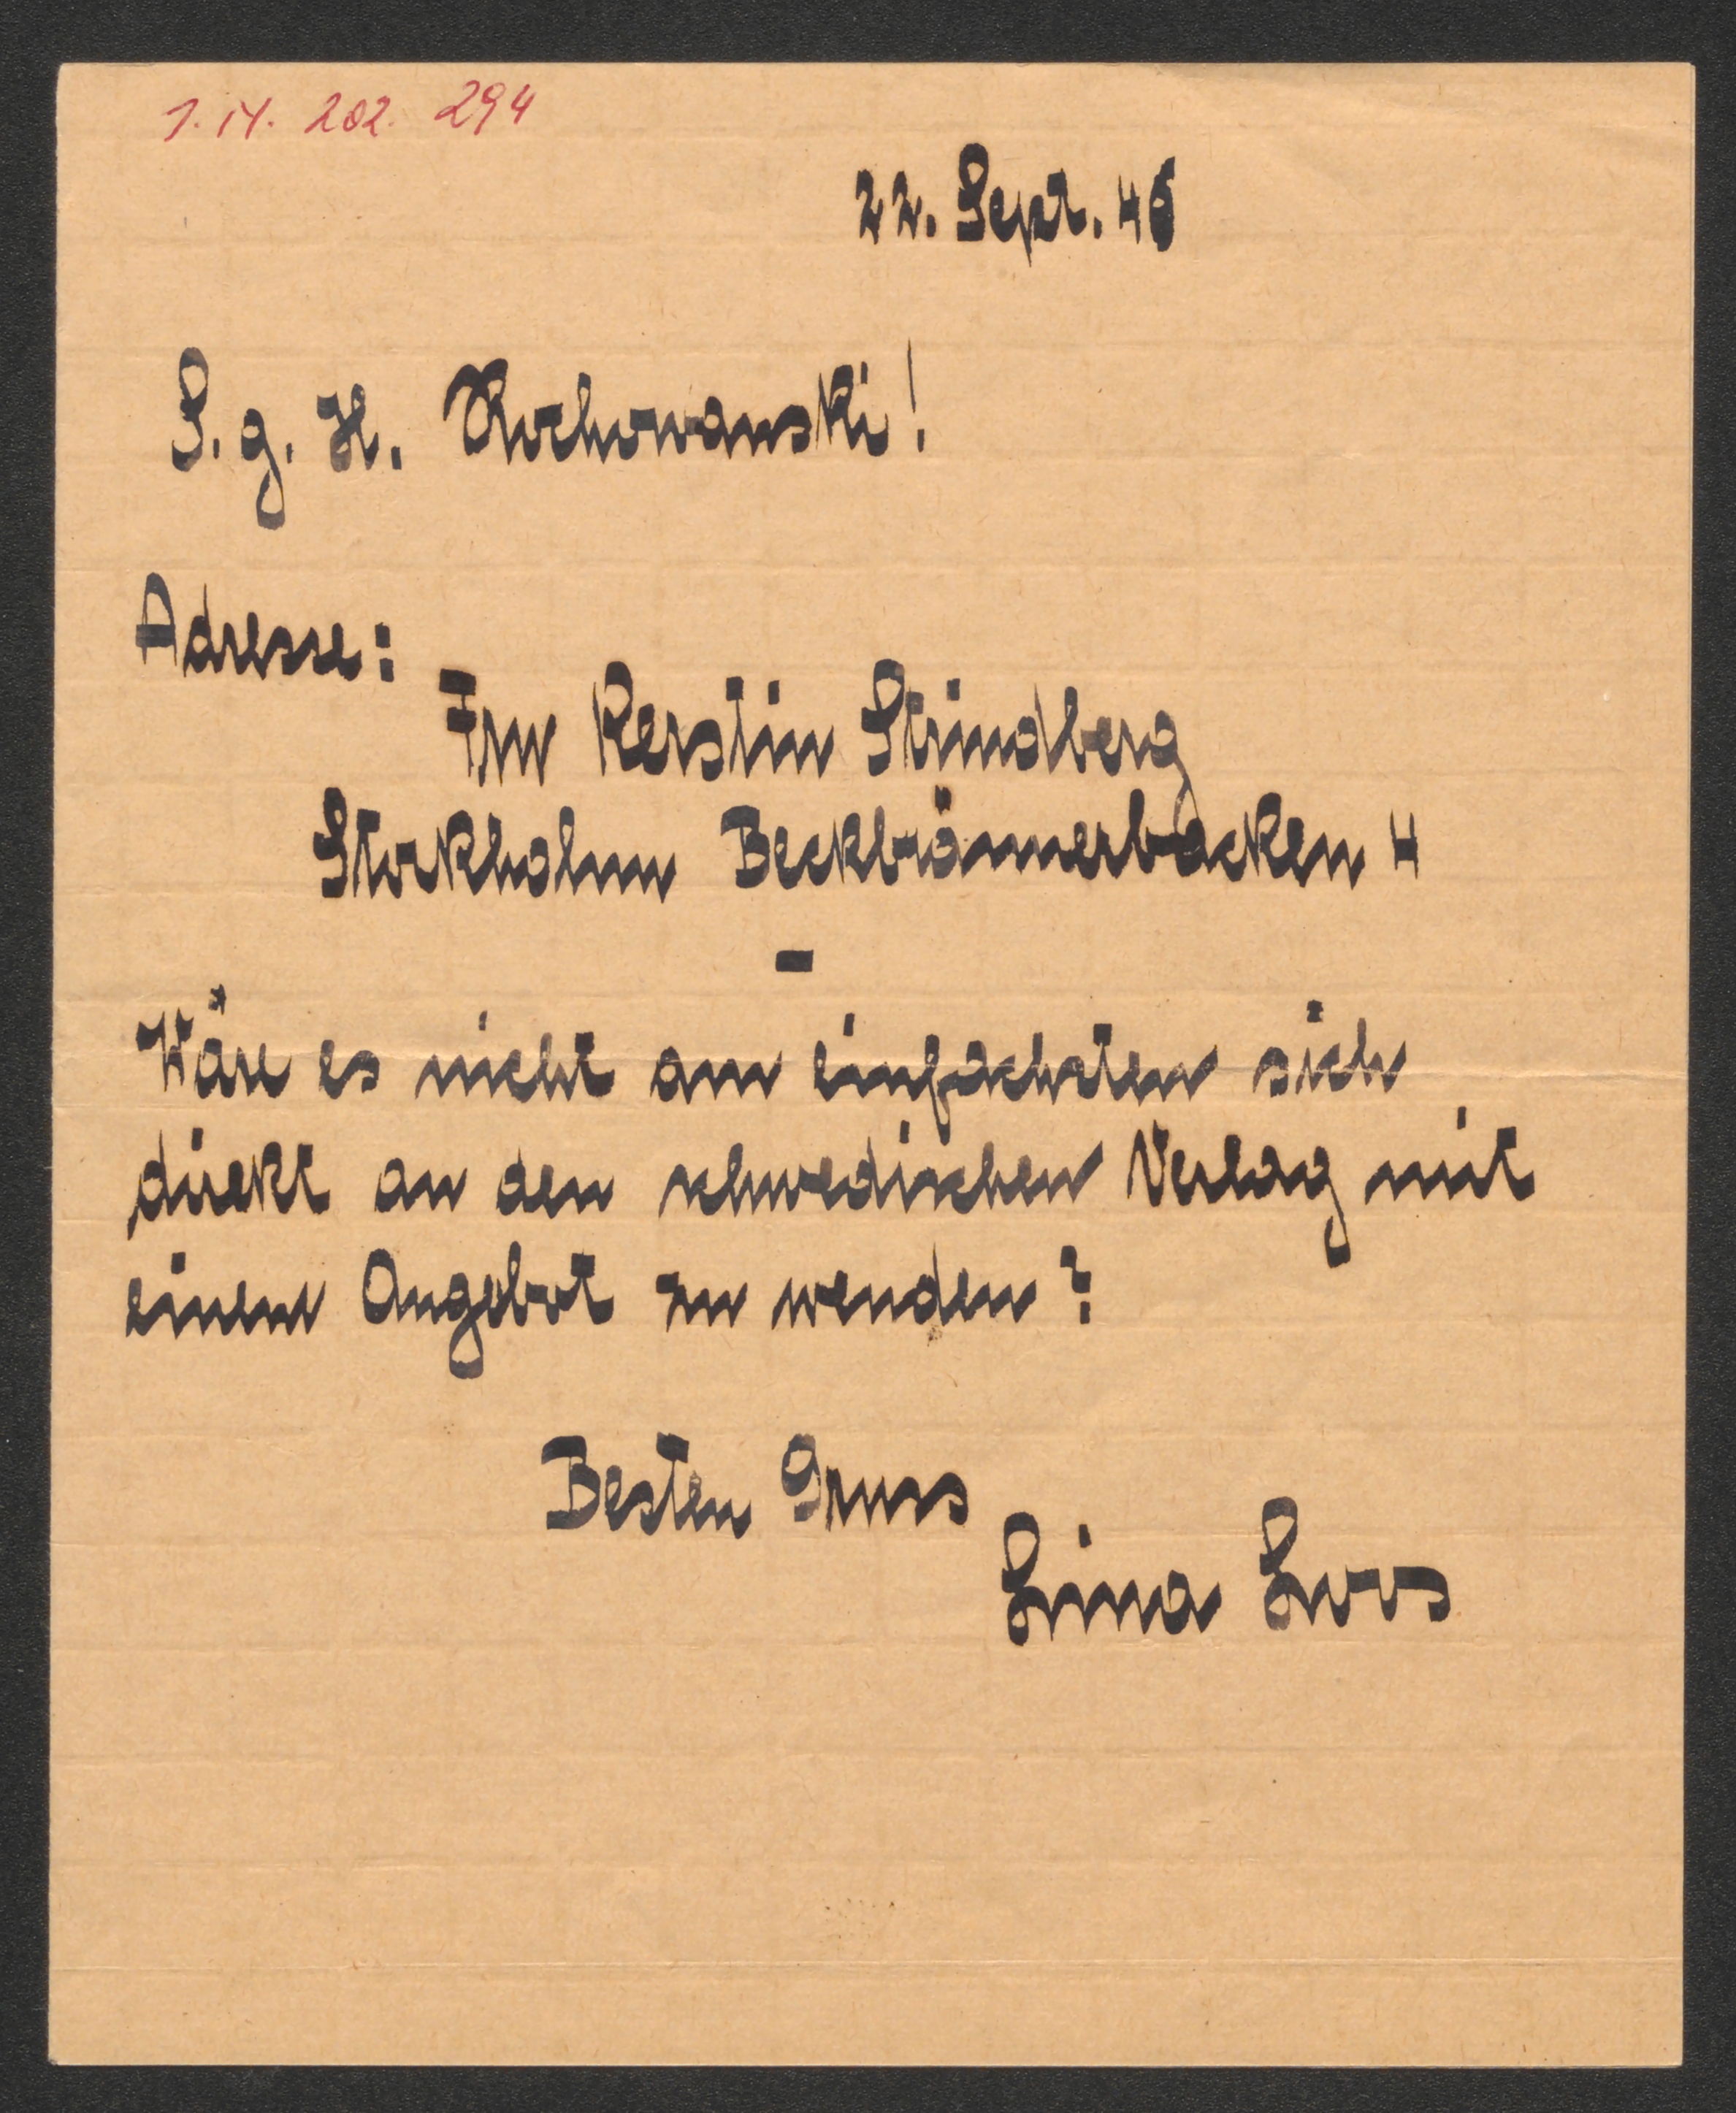 I.N. 202.294
22. Sept. 46
S. g. H. Rochowanski!
Adresse:
Frw Kerstin Strindberg
Stockholm Beckbrännerbacken 4
-
Wäre es nicht am einfachsten sich
direkt an den schwedischen Verlag mit
einem Angebot zu wenden?
Besten Gruss
Lina Loos